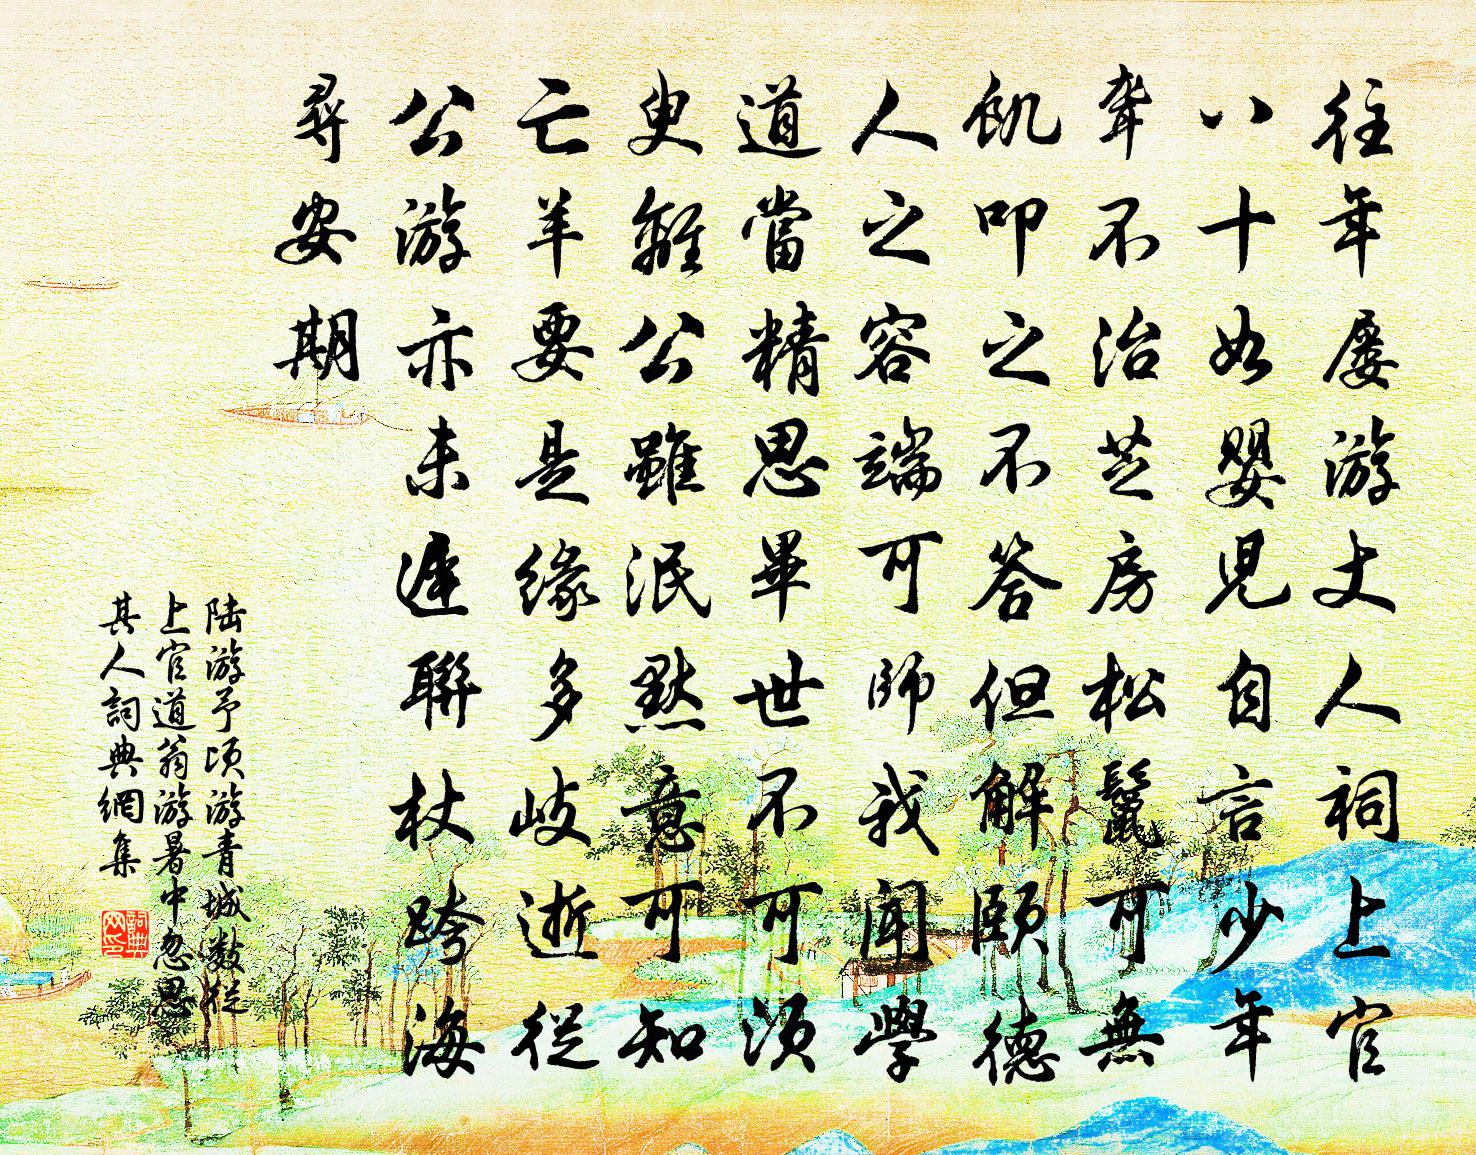 往年屡游丈人祠上官
八十如嬰兒自言少年
聾不治芝房松鬣可無
飢叩之不答但解頤德
人之容端可師我聞學
道當精思畢世不可須
臾離公雖泯默意可知
亡羊要是緣多岐逝從
公游亦未遲聯杖跨海
尋安期
陆游予顷游青城数從
上官道翁游暑中忽思
其人詞典網集